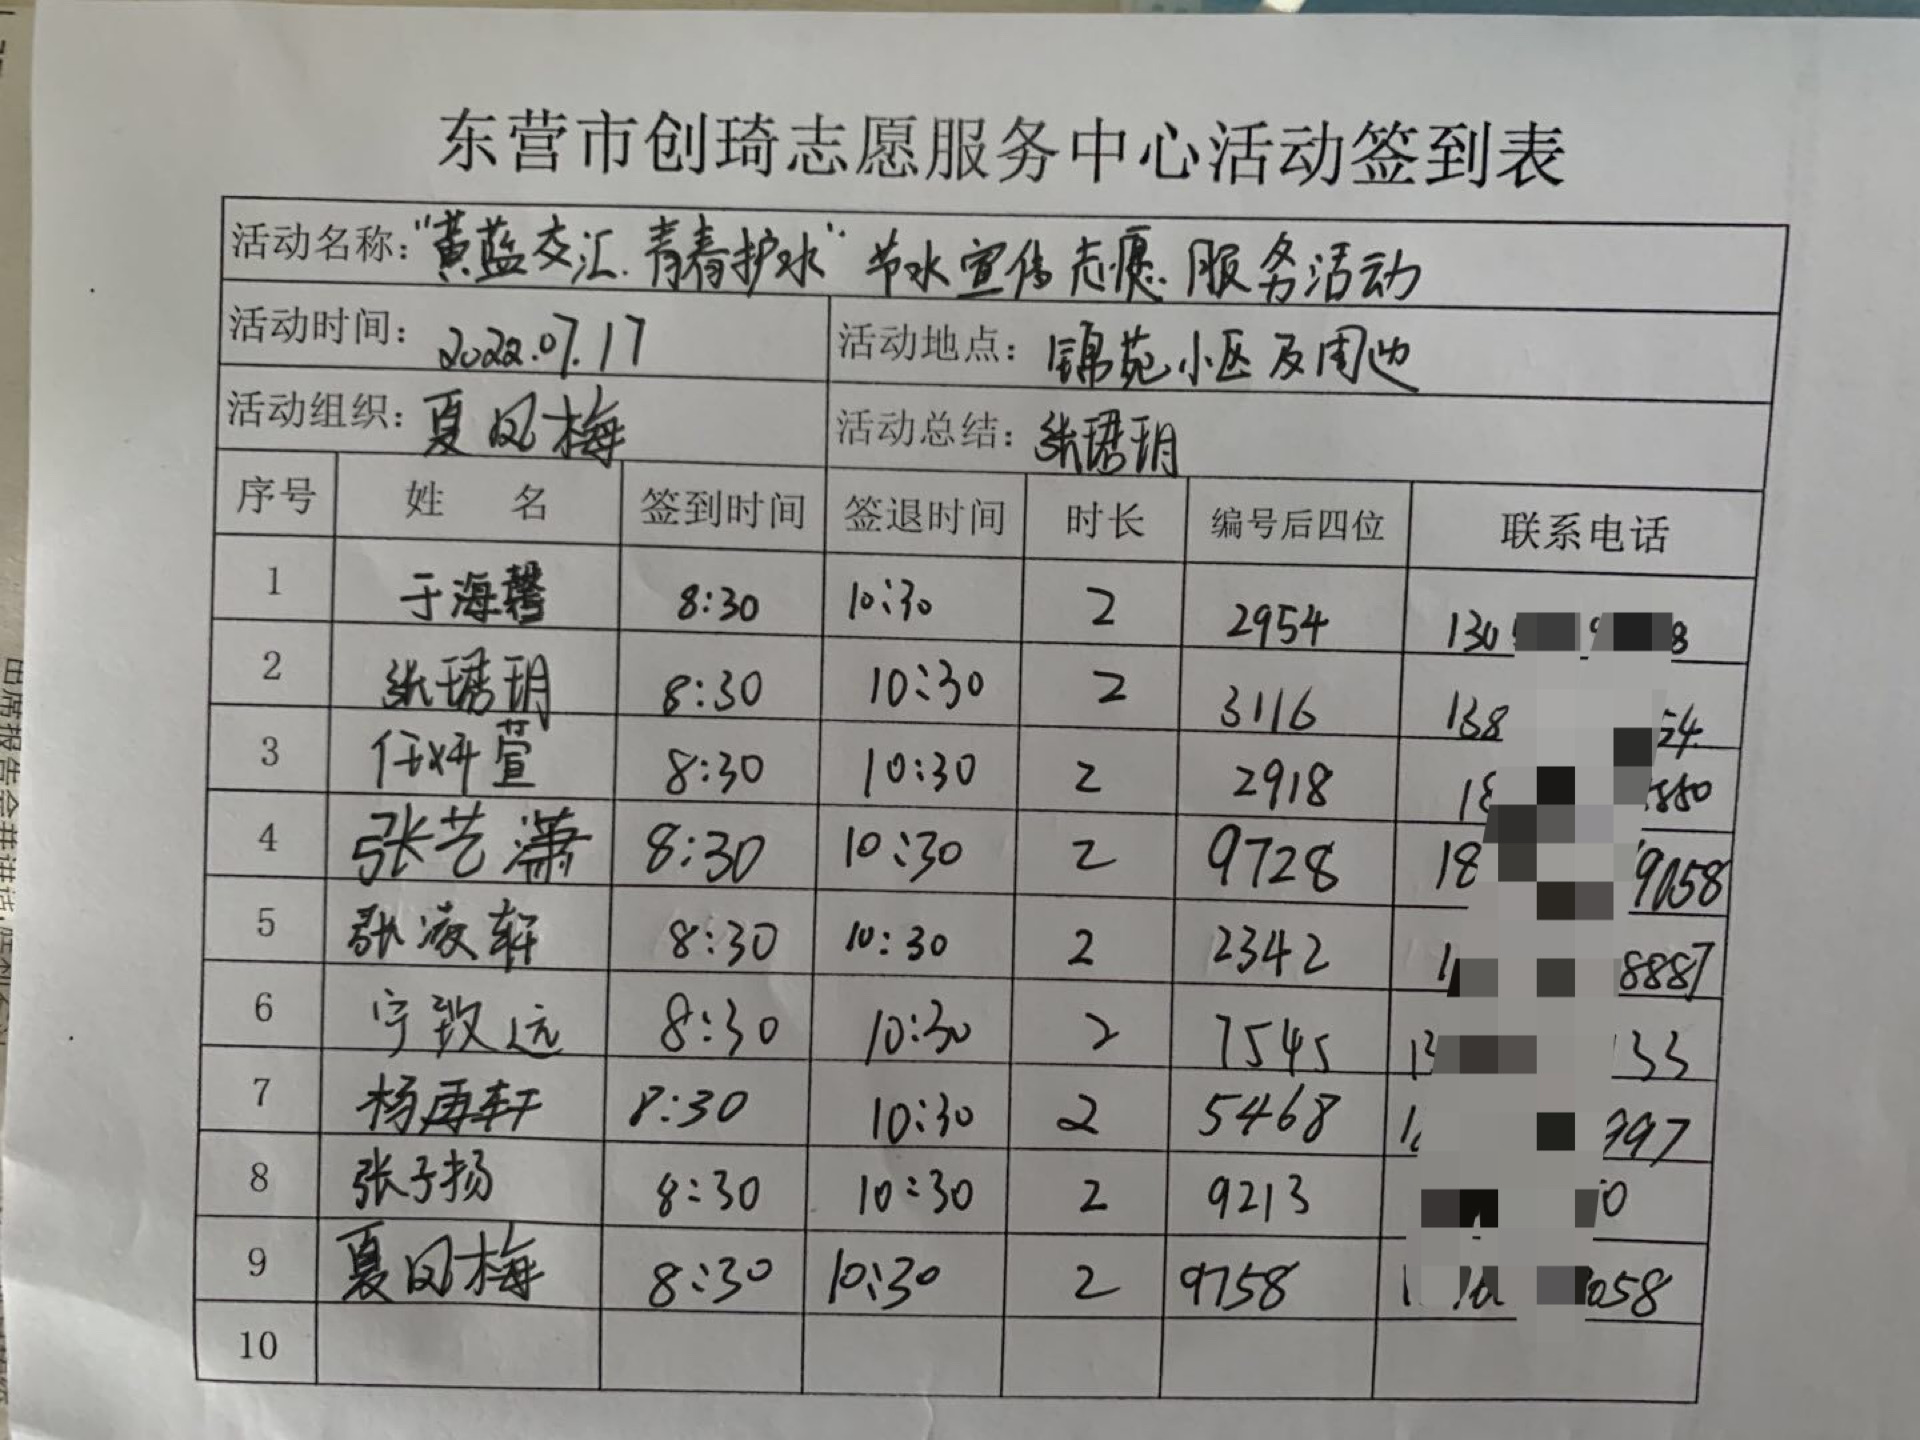 东营市创琦志愿服务中心活动签到表
活动名称：“黄蓝交汇.青春护水”节水宣传志愿服务活动
活动时间：2022.07.17 活动地点：锦苑小区及周边
活动组织：夏风梅 活动总结：张珺玥
序号 姓 名 签到时间 签退时间 时长 编号后四位 联系电话
1 于海馨 8:30 10:30 2 2954 130 8
2 张珺玥 8:30 10:30 2 3116 138 54
3 任妍萱 8:30 10:30 2 2918 18
4 张艺潇 8:30 10:30 2 9728 18 9058
5 张凌轩 8:30 10:30 2 2342 1 8887
6 宁致远 8:30 10:30 2 7545 13 133
7 杨再轩 8:30 10:30 2 5468 1 997
8 张子扬 8:30 10:30 2 9213 0
9 夏风梅 8:30 10:30 2 9758 1 058
10
出席报告会并讲话